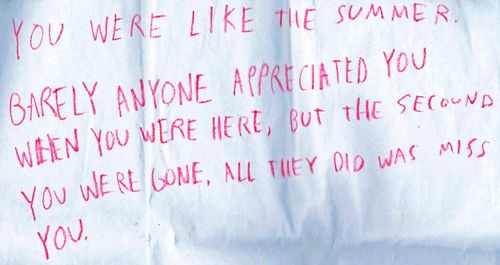 YOU WERE LIKE THE SUMMER.
BARELY ANYONE APPRECIATED YOU
WHEN YOU WERE HERE, BUT THE SECOUND
YOU WERE GONE, ALL THEY DID WAS MISS
YOU.